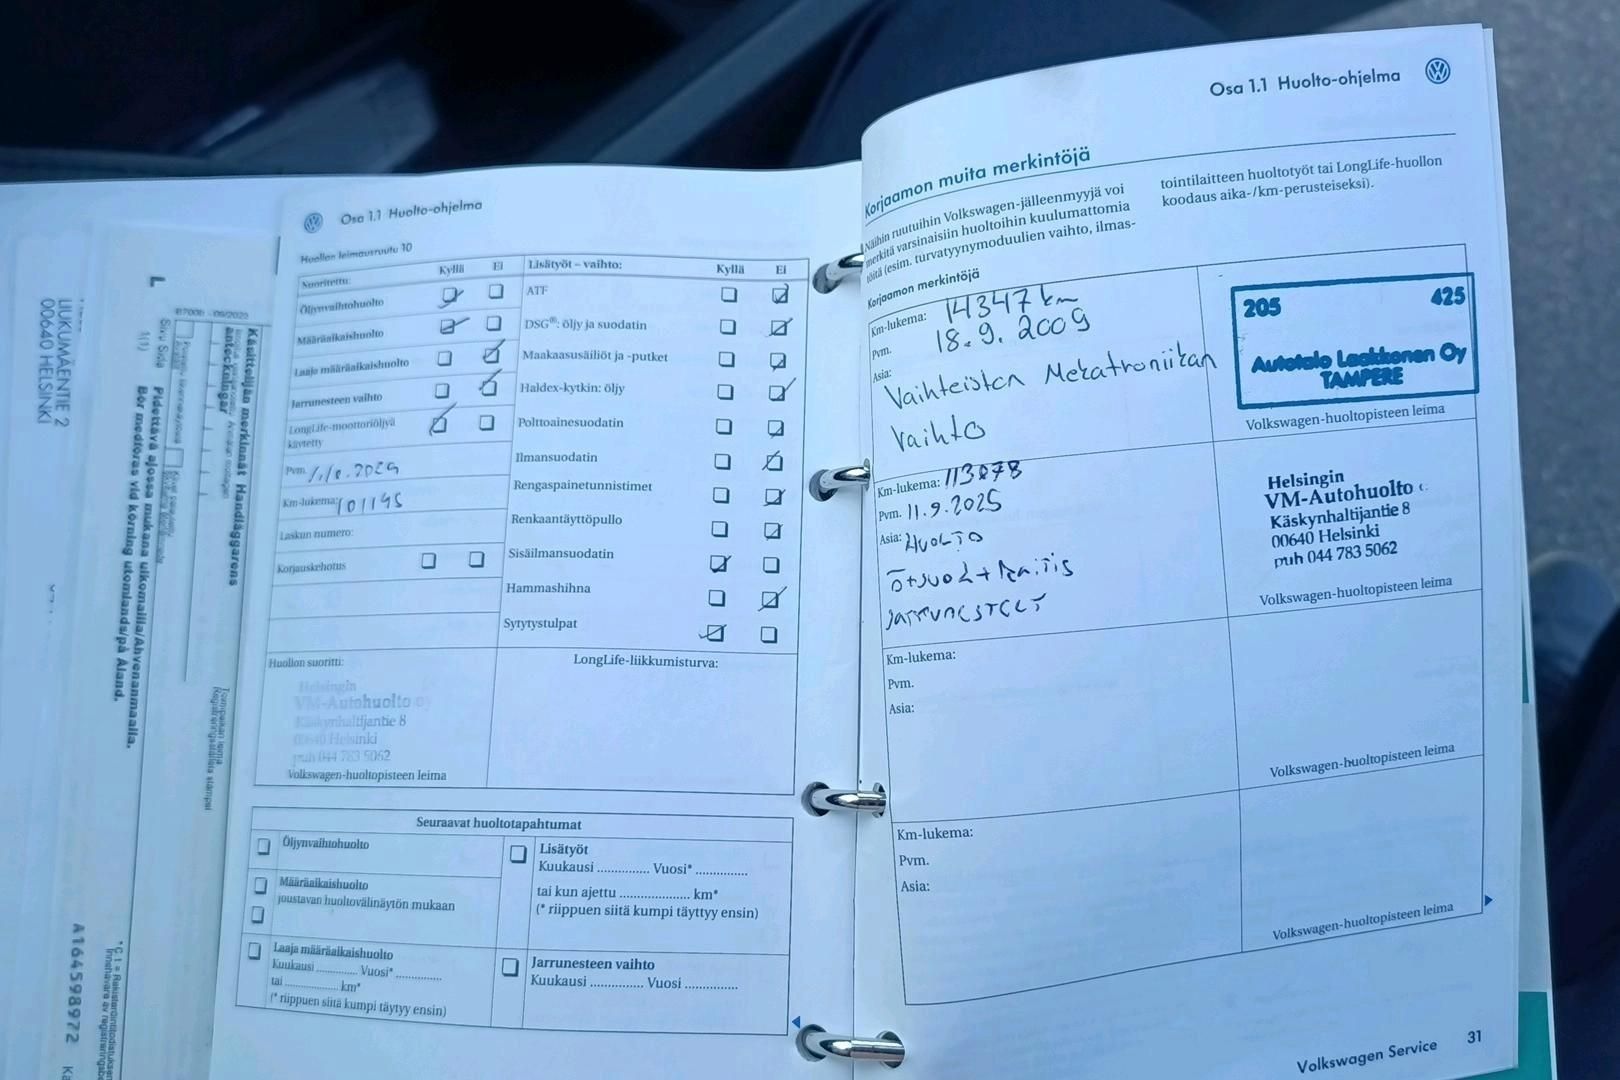 UUKUMÄENTIE 2
00640 HELSINKI
A164598972
B700b - 09/2022
Käsittelijän merkinnät Handläggarens
anteckningar
Sivu Sida
1(1)
Pidettävä ajossa mukana ulkomailla/Ahvenanmaalla.
Bör medföras vid körning utomlands/på Åland.
Osa 1.1 Huolto-ohjelma
Huollon leimausruutu 10
Suoritettu: Kyllä Ei
Öljynvaihtohuolto
Määräaikaishuolto
Laaja määräaikaishuolto
Jarrunesteen vaihto
LongLife-moottoriöljyä
käytetty
Pvm.
Km-lukema: 101195
Laskun numero:
Korjauskehotus
Huollon suoritti:
Helsingin
VM-Autohuolto oy
Käskynhaltijantie 8
00640 Helsinki
puh 044 783 5062
Volkswagen-huoltopisteen leima
Lisätyöt – vaihto: Kyllä Ei
ATF
DSG®: öljy ja suodatin
Maakaasusäiliöt ja -putket
Haldex-kytkin: öljy
Polttoainesuodatin
Ilmansuodatin
Rengaspainetunnistimet
Renkaantäyttöpullo
Sisäilmansuodatin
Hammashihna
Sytytystulpat
LongLife-liikkumisturva:
Seuraavat huoltotapahtumat
Öljynvaihtohuolto
Määräaikaishuolto
joustavan huoltovälinäytön mukaan
Laaja määräaikaishuolto
Kuukausi ............ Vuosi* ............
tai .................... km*
(* riippuen siitä kumpi täytyy ensin)
Lisätyöt
Kuukausi .............. Vuosi* ..............
tai kun ajettu .................... km*
(* riippuen siitä kumpi täyttyy ensin)
Jarrunesteen vaihto
Kuukausi .............. Vuosi ..............
Osa 1.1 Huolto-ohjelma
Korjaamon muita merkintöjä
Näihin ruutuihin Volkswagen-jälleenmyyjä voi
merkitä varsinaisiin huoltoihin kuulumattomia
töitä (esim. turvatyynymoduulien vaihto, ilmas-
tointilaitteen huoltotyöt tai LongLife-huollon
koodaus aika-/km-perusteiseksi).
Korjaamon merkintöjä
Km-lukema: 14347 km
Pvm. 18.9.2009
Asia:
Vaihteiston Mekatroniikan
Vaihto
205 425
Autotalo Laakkonen Oy
TAMPERE
Volkswagen-huoltopisteen leima
Km-lukema: 113078
Pvm. 11.9.2025
Asia: HUOLTO
JARRUNESTEET
Helsingin
VM-Autohuolto
Käskynhaltijantie 8
00640 Helsinki
puh 044 783 5062
Volkswagen-huoltopisteen leima
Km-lukema:
Pvm.
Asia:
Volkswagen-huoltopisteen leima
Km-lukema:
Pvm.
Asia:
Volkswagen-huoltopisteen leima
Volkswagen Service 31